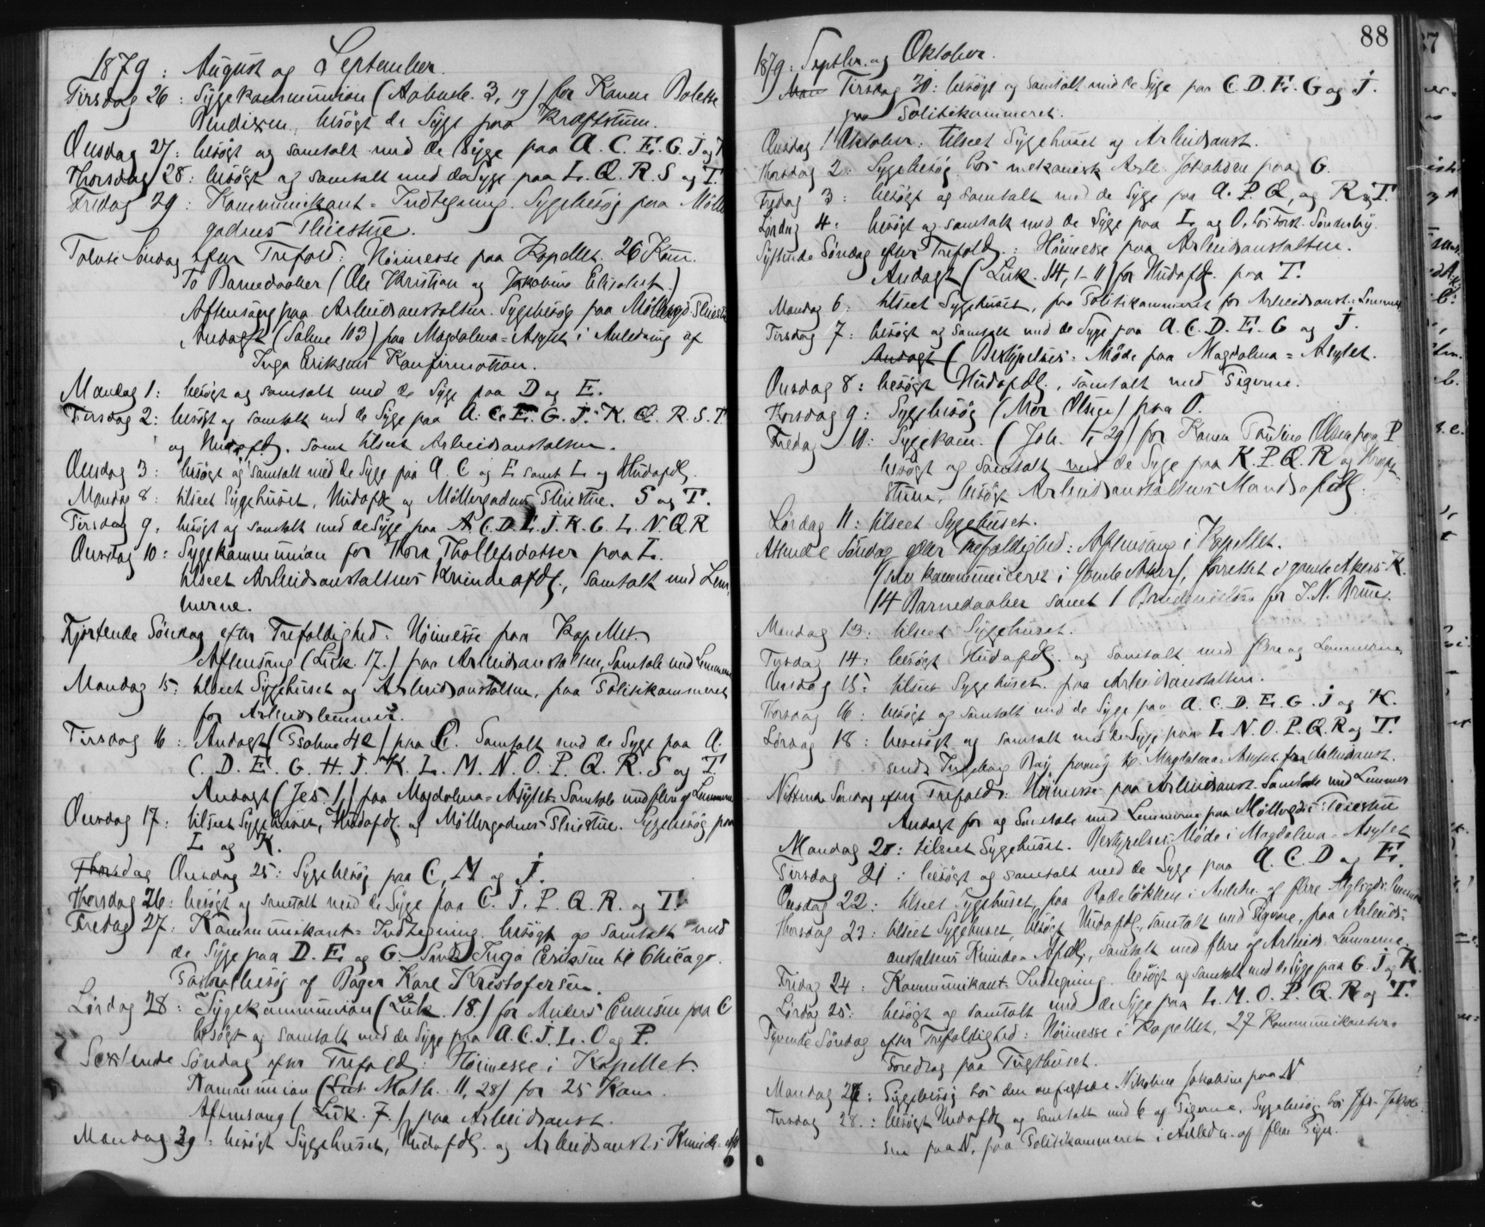 1879: August og September.
Tirsdag 26: Sygekommunion (Aabenb. 3, 19) for Karen Bolette
Bendixen, besøgt de Syge paa Kræftstuen.
Onsdag 27: besøgt og samtalt med de Syge paa A. C. E. G. J og
Thorsdag 28: besøgt og samtalt med de Syge paa L. Q. R. S og T.
Fredag 29: Kommunikant-Indtegning. Sygebesøg paa Møller
gadens Pleiestue.
Tolvte Søndag efter Trefold: Høimesse paa Kapellet. 26 Kom.
To Barnedaaber (Ole Kristian og Jakobine Elisabet.)
Aftensang paa Arbeidsanstalten. Sygebesøg paa Møllerg. Pleiestue
Andagt (Salme 103) paa Magdalena-Asylet i Anledning af
Inga Eriksens Konfirmation.
Mandag 1: besøgt og samtalt med de Syge paa D og E.
Tirsdag 2: besøgt og samtalt med de Syge paa A. C. E. G. J. K. Q. R. S. T.
og Hudafdlg. samt tilseet Arbeidsanstalten.
Onsdag 3: besøgt og samtalt med de Syge paa A. C og E samt L og Hudafdlg.
Mandag 8: tilseet Sygehuset, Hudafdlg og Møllergadens Pleiestue. S og T.
Tirsdag 9. besøgt og samtalt med de Syge paa A. C. D. E. J. K. G. L. N. Q R
Onsdag 10: Sygekommunion for Thora Thollefsdatter paa L.
tilseet Arbeidsanstaltens Kvindeafdlg., samtalt med Lem-
merne.
Fjortende Søndag efter Trefoldighed: Høimesse paa Kapellet
Aftensang (Luk. 17.) paa Arbeidsanstalten, Samtale med Lemmerne
Mandag 15: tilseet Sygehuset og Arbeidsanstalten, paa Politikammeret
for Arbeidslemmer.
Tirsdag 16: Andagt (Psalme 42) paa C. Samtalt med de Syge paa A.
C. D. E. G. H. J. K. L. M. N. O. P. Q. R. S og T.
Andagt (Jes 1,) paa Magdalena-Asylet. Samtale med flere af Lemmerne
Onsdag 17: tilseet Sygehuset, Hudafdlg og Møllergadens Pleiestue. Sygebesøg paa
L og K.
Thorsdag Onsdag 25: Sygebesøg paa C, M og J.
Thorsdag 26: besøgt og samtalt med de Syge paa C. J. P. Q. R. og T.
Fredag 27: Kommunikant-Indtegning. besøgt og samtalt med
de Syge paa D. E og G. Inga Eriksen til Chicago.
besøg af Bager Karl Kristofersen.
Lørdag 28: Sygekommunion (Luk. 18.) for Anders paa C
besøgt og samtalt med de Syge paa A. C. J. L. O og P.
Sextende Søndag efter Trefoldg: Høimesse i Kapellet.
Kommunion (Math. 11, 28) for 25 Kom.
Aftensang (Luk. 7.) paa Arbeidsanst.
Mandag 29: besøgt Sygehuset, Hudafdlg. og Arbeidsansts Kvinde-
88
1879: Septbr. og Oktober.
Tirsdag 30: besøgt og samtalt med de Syge paa C. D. E. G og J.
paa Politikammeret.
Onsdag 1 Oktober: tilseet Sygehuset og Arbeidsanst.
Thorsdag 2: Sygebesøg hos mekanisk Arb. Jakobsen paa G.
Fredag 3: besøgt og samtalt med de Syge paa A. P. Q, og R og T.
Lørdag 4: besøgt og samtalt med de Syge paa L og O. hos Sønderby.
Syttende Søndag efter Trefoldg: Høimesse paa Arbeidsanstalten.
Andagt (Luk. 14, 1-11) for Hudafdlg. paa T.
Mandag 6: tilseet Sygehuset, paa Politikammeret for Arbeidsanst: Lemmer
Tirsdag 7: besøgt og samtalt med de Syge paa A. C. D. E. G og J.
Andagt ( Bestyrelses-Møde paa Magdalena-Asylet.
Onsdag 8: besøgt Hudafdlg., samtalt med Pigerne.
Thorsdag 9: Sygebesøg (Mor Olsen) paa O.
Fredag 10: Sygekom. (Joh. 1, 29) for Karen Olsen paa P
besøgt og samtalt med de Syge paa K. P. Q. R og Kræft-
stuen, besøgt Arbeidsanstaltens Mandsafdlg
Lørdag 11: tilseet Sygehuset.
Attende Søndag efter Trefoldighed: Aftensang i Kapellet.
(selv kommuniceret i gamle Aker), forrettet i gamle Akers K.
14 Barnedaaber samt 1 for I. N. Bruun.
Mandag 13: tilseet Sygehuset.
Tirsdag 14: besøgt Hudafdlg. og samtalt med flere af Lemmerne
Onsdag 15: tilseet Sygehuset. paa Arbeidsanstalten.
Thorsdag 16: besøgt og samtalt med de Syge paa A. C. D. E. G. J og K.
Lørdag 18: besøgt og samtalt med de Syge paa L. N. O. P. Q. R og T.
sendt Ingeborg til Magdalena-Asylet fra Arbeidsanst.
Nittende Søndag efter Trefoldg: Høimesse paa Arbeidsanst. Samtale med Lemmer
Andagt for og Samtale med Lemmerne paa Møllergds: Pleiestue
Mandag 20: tilseet Sygehuset. Bestyrelses-Møde i Magdalena-Asylet
Tirsdag 21: besøgt og samtalt med de Syge paa A. C. D og E.
Onsdag 22: tilseet Sygehuset, paa Rodeløkken i Anledn. af flere
Thorsdag 23: tilseet Sygehuset, besøgt Hudafdlg., samtalt med Pigerne, paa Arbeids-
anstaltens Kvinde-Afdlg, samtalt med flere af Arbeids-Lemmerne
Fredag 24: Kommunikant-Indtegning. besøgt og samtalt med de Syge paa G. J og K.
Lørdag 25: besøgt og samtalt med de Syge paa L. M. O. P. Q. R og T.
Tyvende Søndag efter Trefoldighed: Høimesse i Kapellet, 27 Kommunikanter.
Foredrag paa Tugthuset.
Mandag 27: Sygebesøg hos den Nikoline Jakobsen paa N
Tirsdag 28: besøgt Hudafdlg og samtalt med 6 af Pigerne. Sygebesøg hos Jfr. Jakob-
sen paa N, paa Politikammeret i Anledn. af flere Piger.